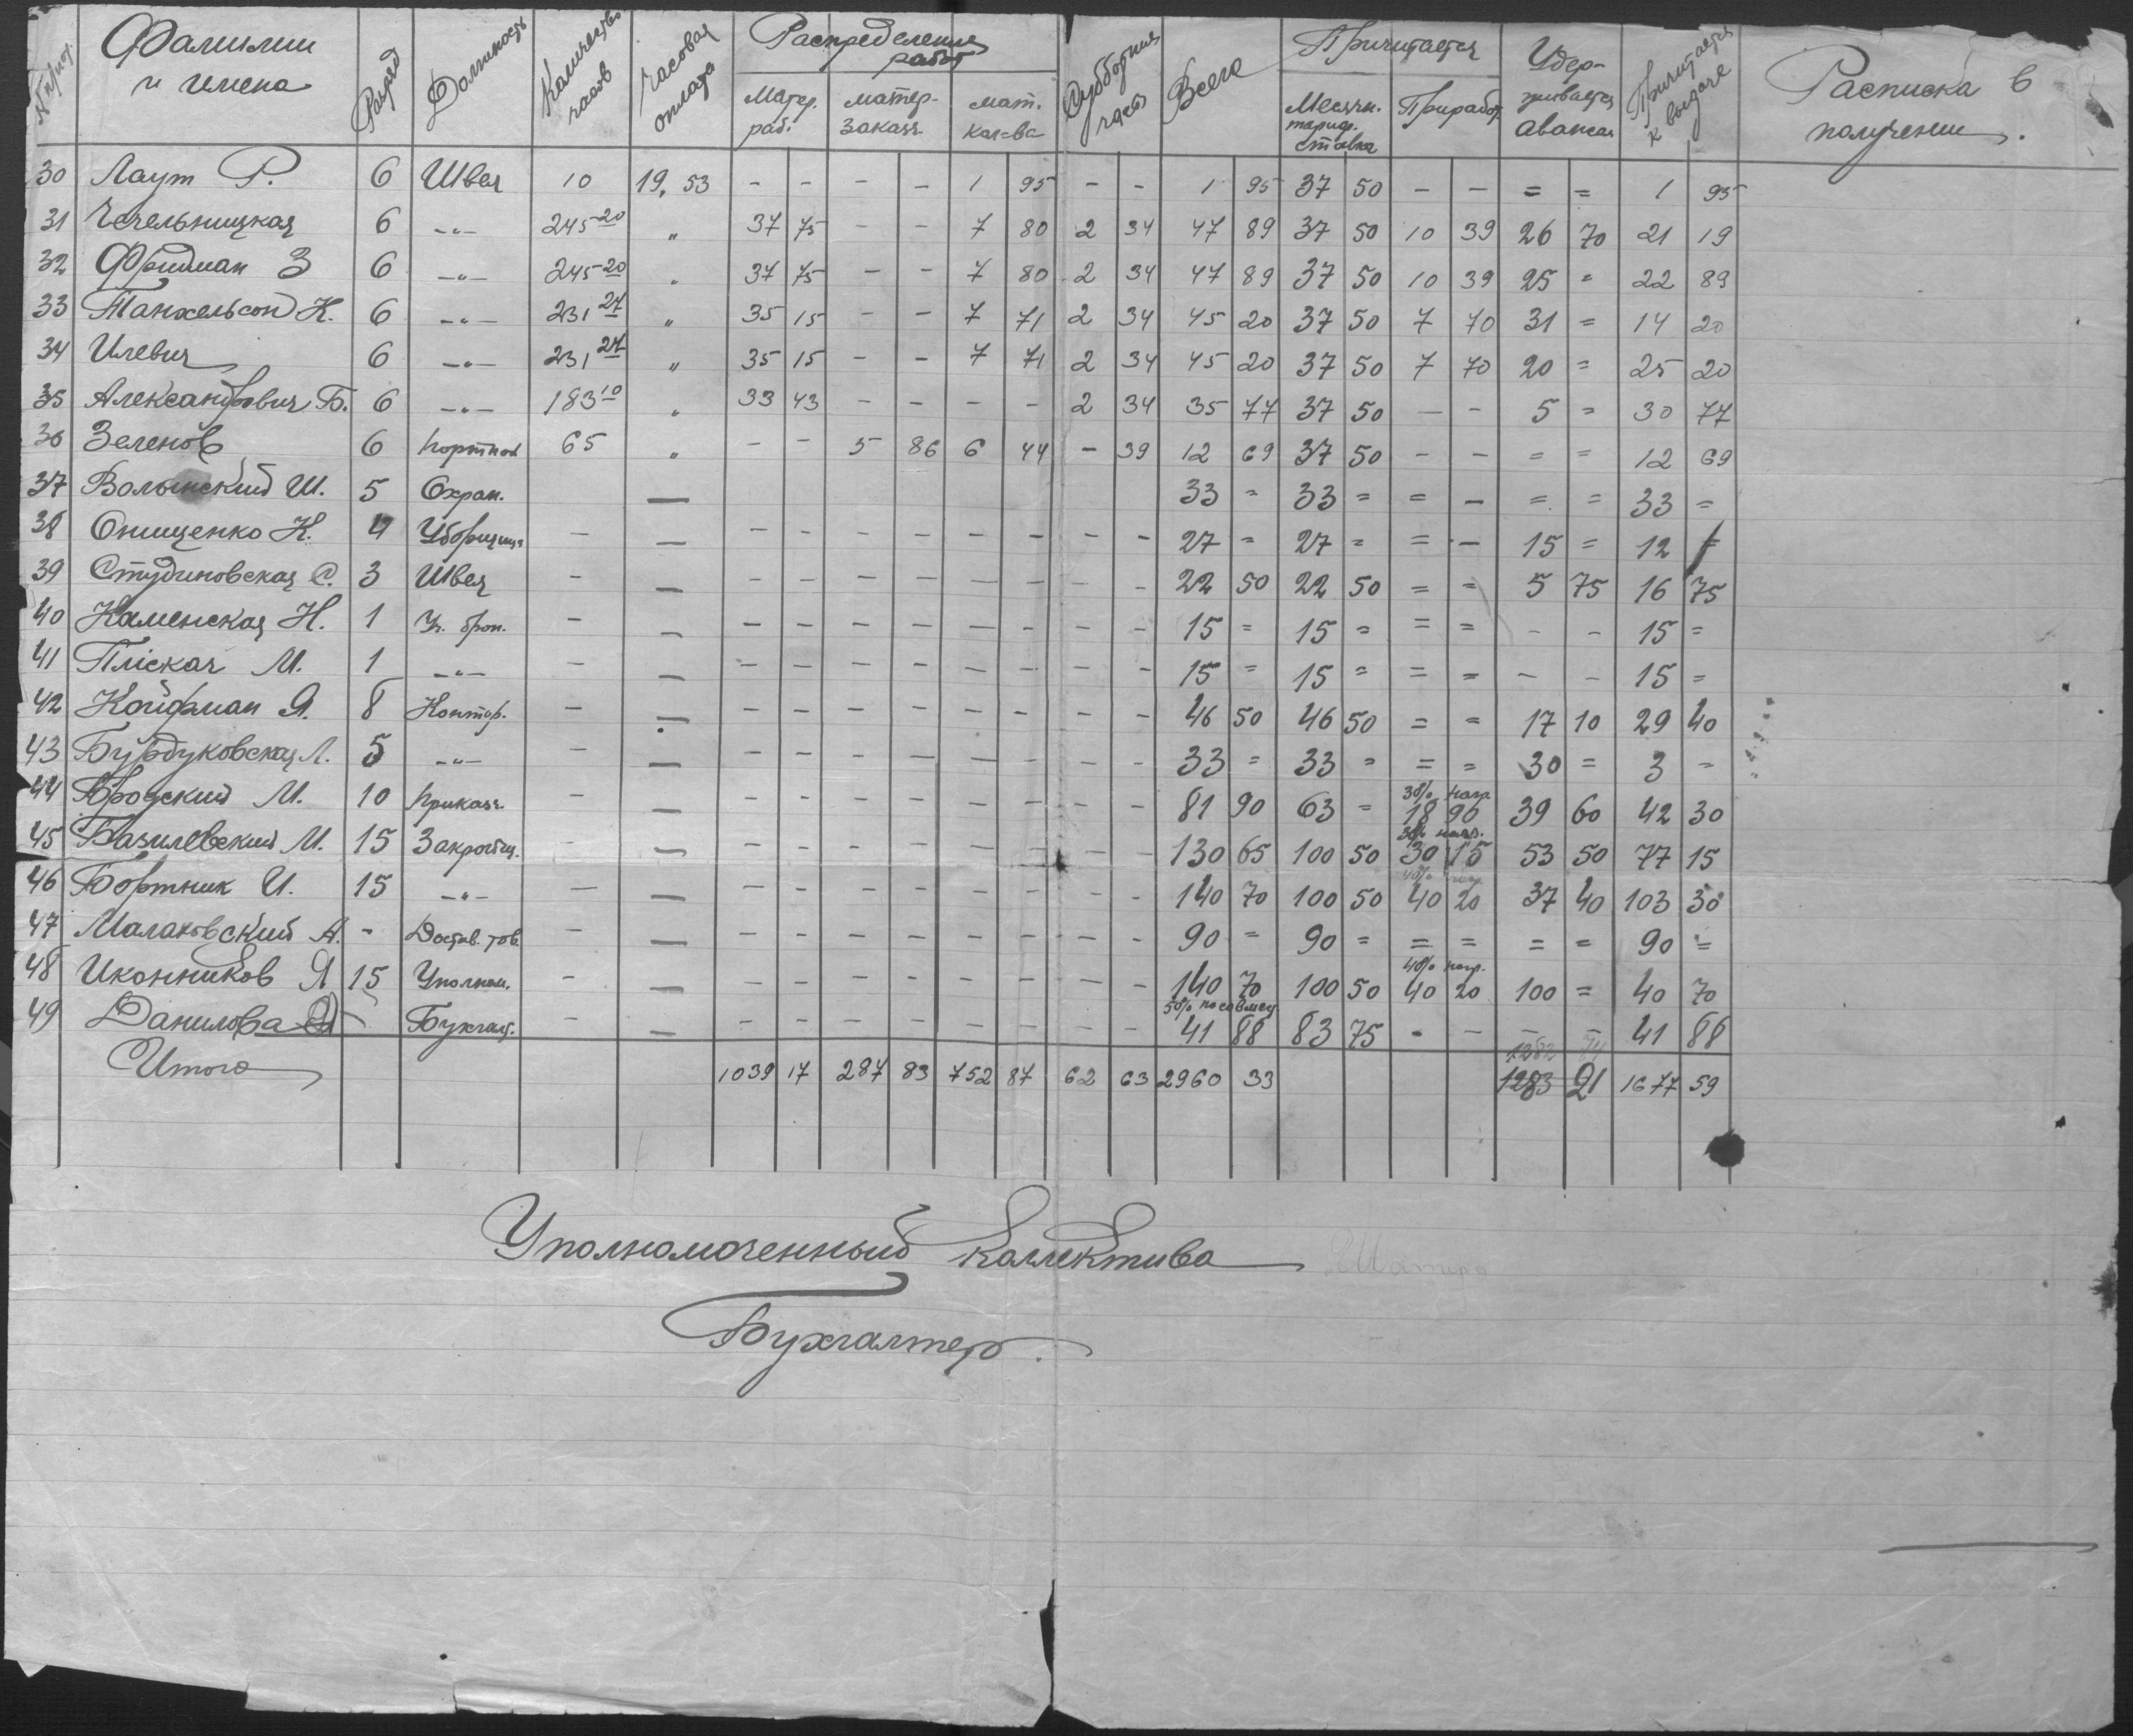 № п/пор. Фамилии и имена Разряд Должность Количество часов Часовая оплата Распределение работ Субботние часы Всего Причитается Удерживается авансы Причитается к выдаче Расписка в получении.
Матер. раб. матер. заказч. мат. кол-ва Месячн. тариф. ставка Приработ.
30 Лаут Р. 6 Швея 10 19,53 - - - - 1 95 - - 1 95 37 50 - - = = 1 95
31 Чечельницкая 6 -"- 245 20 " 37 75 - - 7 80 2 34 47 89 37 50 10 39 26 70 21 19
32 Фридман З 6 -"- 245 20 " 37 75 - - 7 80 2 34 47 89 37 50 10 39 25 = 22 89
33 Танхельсон К. 6 -"- 231 27 " 35 15 - - 7 71 2 34 45 20 37 50 7 70 31 = 14 20
34 Илевич 6 -"- 231 27 " 35 15 - - 7 71 2 34 45 20 37 50 7 70 20 = 25 20
35 Александрович Б. 6 -"- 183 10 " 33 43 - - - - 2 34 35 77 37 50 - - 5 = 30 77
36 Зеленов 6 портной 65 " - - 5 86 6 44 - 39 12 69 37 50 - - = = 12 69
37 Волынский Ш. 5 Охран. — 33 = 33 = = - = = 33 =
38 Онищенко К. 4 Уборщица - — - - - - - - - - 27 = 27 = = - 15 = 12 =
39 Студиновская С. 3 Швея - — - - - - - - - - 22 50 22 50 = = 5 75 16 75
40 Каменская Н. 1 Уч. брон. - — - - - - - - - - 15 = 15 = = = - - 15 =
41 Пліскач М. 1 -"- - — - - - - - - - - 15 = 15 = = = - - 15 =
42 Койфман Я. 8 Контор. - — - - - - - - - - 46 50 46 50 = = 17 10 29 40
43 Бурдуковская Л. 5 -"- - — - - - - - - - - 33 = 33 = = = 30 = 3 =
44 Бродский М. 10 приказч. - — - - - - - - - - 81 90 63 = 30% нагр. 18 90 39 60 42 30
45 Базилевский М. 15 Закройщ. - — - - - - - - - - 130 65 100 50 30% нагр. 30 15 53 50 77 15
46 Бортник И. 15 -"- - — - - - - - - - - 140 70 100 50 40% нагр. 40 20 37 40 103 30
47 Малаховский А. - Достав. тов. - — - - - - - - - - 90 = 90 = = = = = 90 =
48 Иконников Я 15 Уполном. - — - - - - - - - - 140 70 100 50 40% нагр. 40 20 100 = 40 70
49 Данилова - Бухгалт. - — - - - - - - - - 50% по совмещ. 41 88 83 75 - - - - 41 88
Итого 1039 17 287 83 752 87 62 63 2960 33 1282 74 1283 21 1677 59
Уполномоченный коллектива
Бухгалтер.